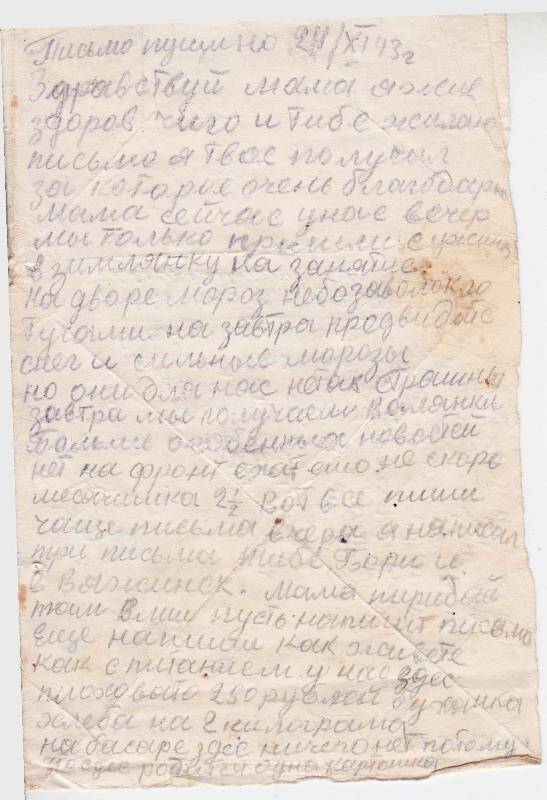 Письмо пущино 24/XI 43г
Здравствуй мама я жив
здоров чиго и тибе жилаю
письмо я твое получил
за которое очень благодарю
мама сейчас у нас вечер
мы только пришли с ужина
в зимлянку на занятие
на дворе мороз небо заволокло
тучами на завтра предвидитс
снег и сильные морозы
но они для нас не так страшны
завтра мы получаем валянки
больше особенных новостей
нет на фронт ехат емо не скоро
2½ Вот все пиши
чаще письма вчера я написал
три письма тибе Бори и
в Вяжинск. Мама пиридай
пусть напишит письмо
еще напиши как живете
как с питанием у нас здес
плоховато 250 рублей буханка
хлеба на 2 килограма
на басаре здес ничего нет потому
здес родится одна картошка